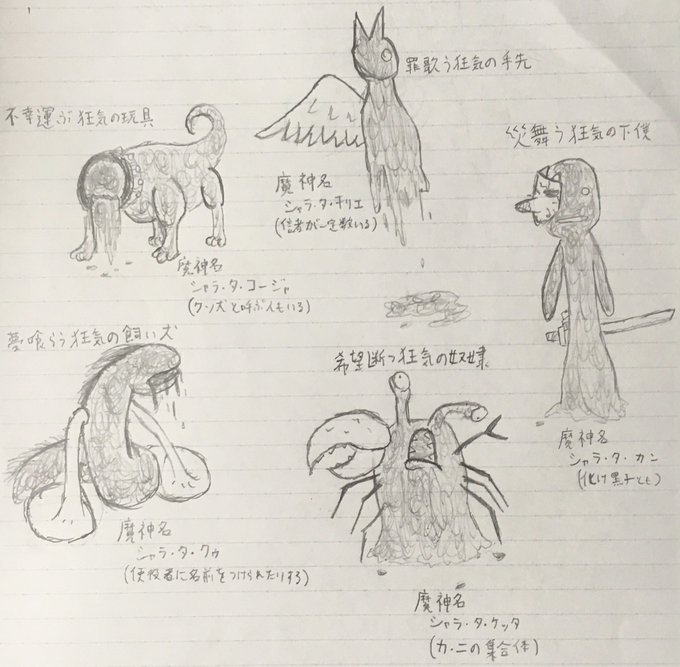 罪歌う狂気の手先
魔神名
シャラ・タ・キリエ
(信者が一定数いる)
不幸運ぶ狂気の玩具
魔神名
シャラ・タ・コージャ
(クソ犬と呼ぶ人もいる)
災舞う狂気の下僕
魔神名
シャラ・タ・カン
(化け黒子とも)
夢喰らう狂気の飼い犬
魔神名
シャラ・タ・クゥ
(使役者に名前をつけられたりする)
希望断つ狂気の奴隷
魔神名
シャラ・タ・ケッタ
(カ・ニの集合体)